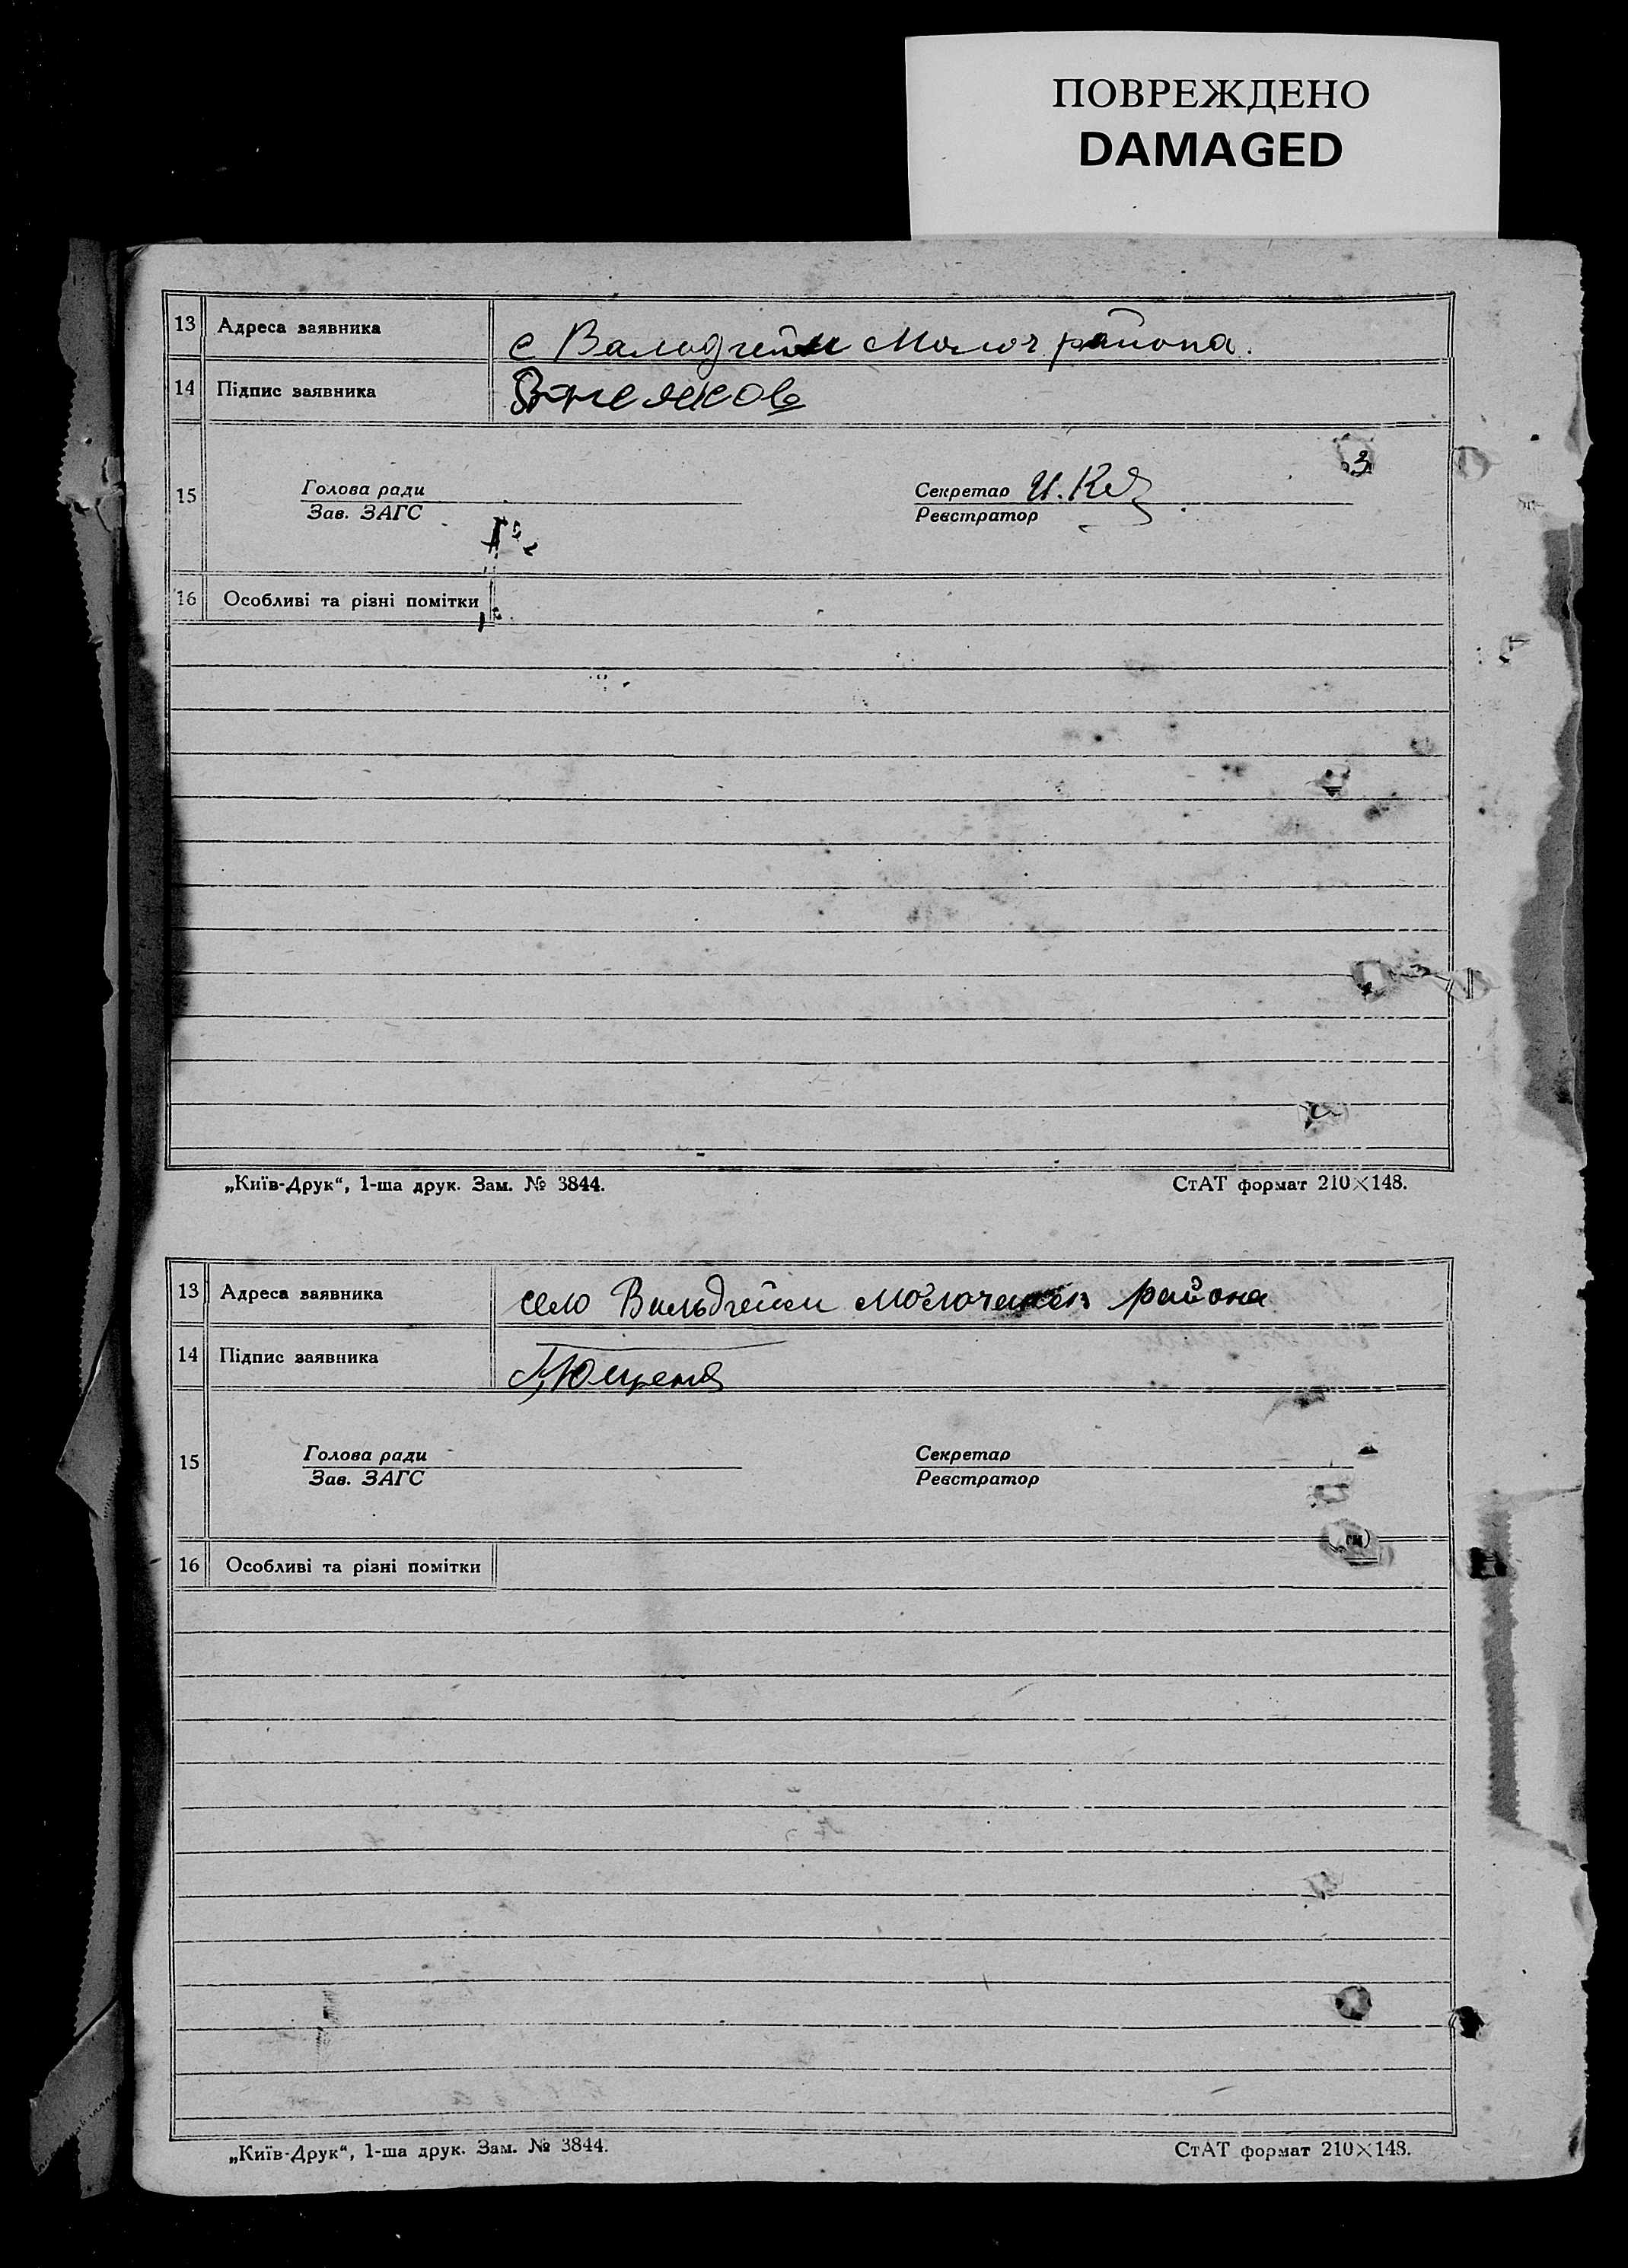 ПОВРЕЖДЕНО
DAMAGED
13 Адреса заявника с Вальдгейм Молоч района.
14 Підпис заявника
15 Голова ради Секретар И.
Зав. ЗАГС Реєстратор
16 Особливі та різні помітки
„Київ-Друк“, 1-ша друк. Зам. № 3844. СтАТ формат 210×148.
13 Адреса заявника село Вальдгейм района
14 Підпис заявника
15 Голова ради Секретар
Зав. ЗАГС Реєстратор
16 Особливі та різні помітки
„Київ-Друк“, 1-ша друк. Зам. № 3844. СтАТ формат 210×148.